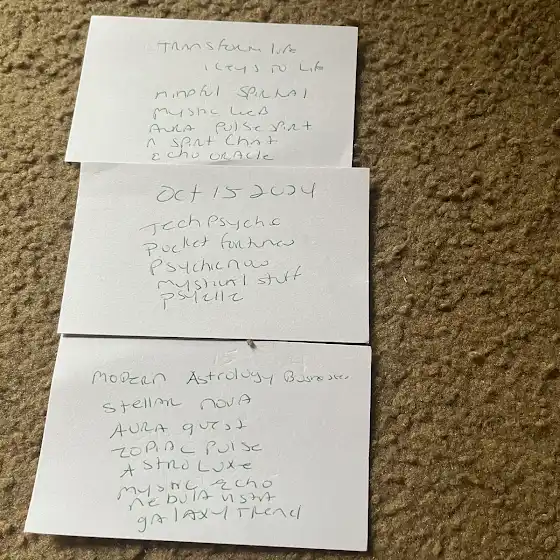 Transform life
keys to life
mindful spiritual
mystic web
Aura pulse spirt
n spirt chat
echo oracle
Oct 15 2024
Tech psychic
pocket fortunes
psychic now
mystical stuff
modern Astrology Businesses
stellar nova
Aura quest
zodiac pulse
Astro luxe
mystic echo
nebula vista
galaxy trend